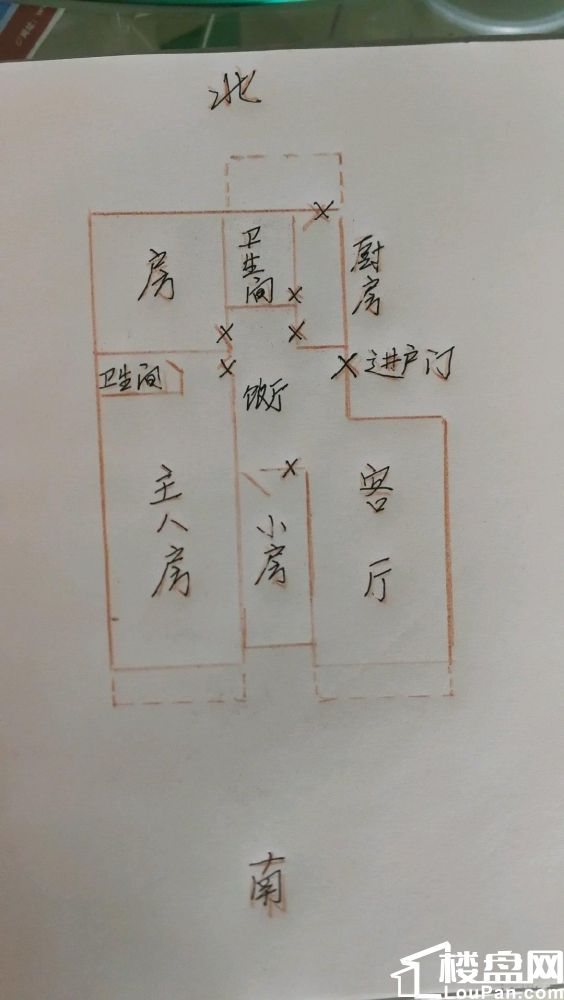 北
房
卫生间
厨房
卫生间
进户门
饭厅
主人房
小房
客厅
南
楼盘网
LouPan.com